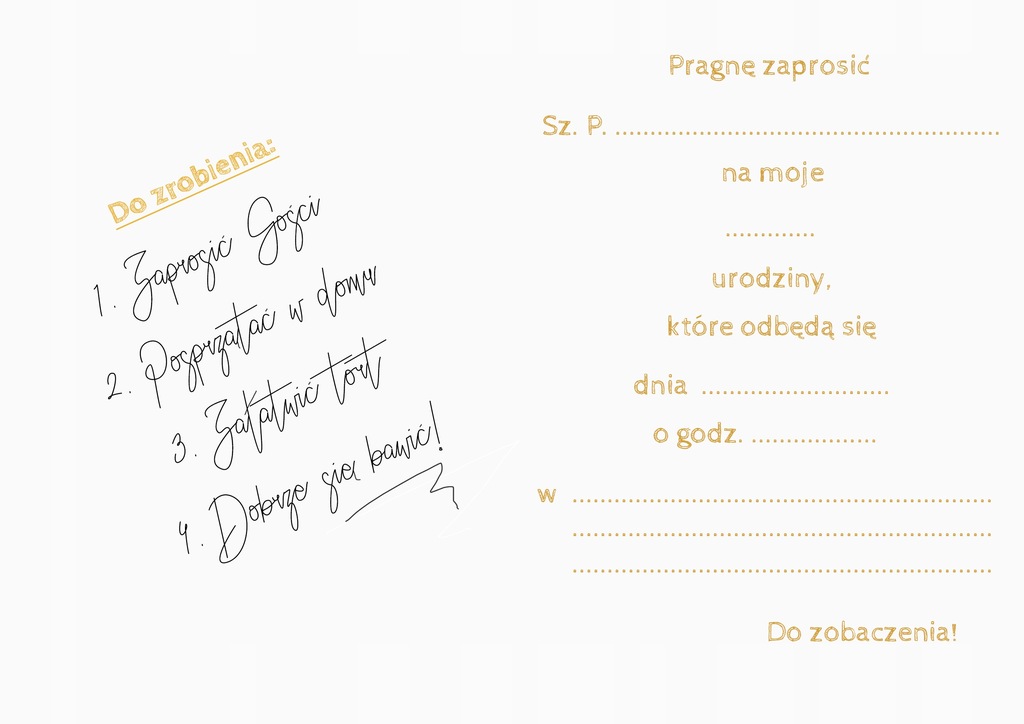 Do zrobienia:
1. Zaprosić Gości
2. Posprzatać w domu
3. Załatwić tórt
4. Dobrze się bawić!
Pragnę zaprosić
Sz. P. .......................................................
na moje
.............
urodziny,
które odbędą się
dnia ...........................
o godz. ..................
w ............................................................
............................................................
............................................................
Do zobaczenia!